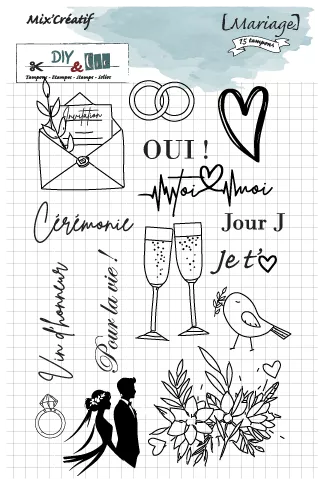 Mix'Créatif
[Mariage]
15 tampons
DIY
& Cie
Tampons - Etampes - Stamps - Sellos
Invitation
OUI !
toi moi
Cérémonie
Jour J
Je t'
Vin d'honneur
Pour la vie !